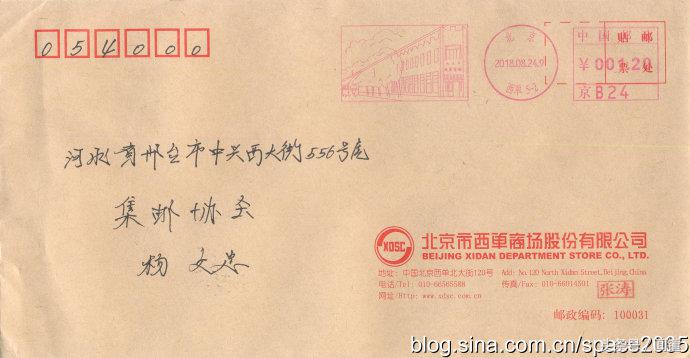 054000
北京
2018.08.24.9
西单 S-2
中国邮政
¥001.20
京B24
贴邮
票处
邢台市中兴西大街556号
集邮协会
杨文忠
XDSC
北京市西单商场股份有限公司
BEIJING XIDAN DEPARTMENT STORE CO., LTD.
地址: 中国北京西单北大街120号 Add: No.120 North Xidan Street, Beijing, China
电话/Tel: 010-66565588 传真/Fax: 010-66014501
网址/Http: www.xdsc.com.cn
张涛
邮政编码: 100031
blog.sina.com.cn/spaec2005